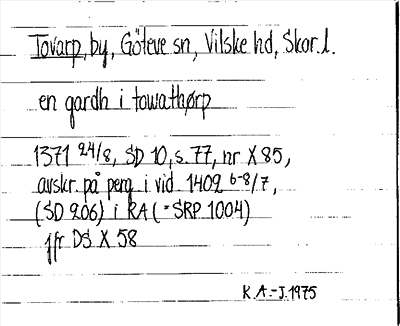 Tovarp, by, Göteve sn, Vilske hd, Skar.l.
en gardh i towathørp
1371 24/8, SD 10, s. 77, nr X 85,
avskr. på perg i vid. 1402 6-8/7,
(SD 206) i RA (= SRP 1004)
jfr DS X 58
K.A.-J. 1975